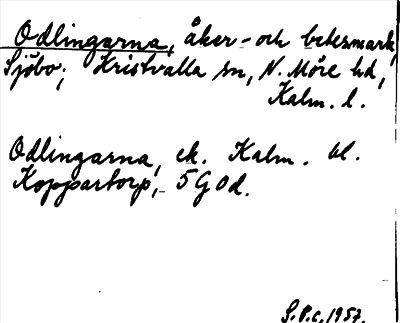 Odlingarna, åker- och betesmark,
Sjöbo; Kristvalla sn, N. Möre hd,
Kalm. l.
Odlingarna, ek. Kalm. bl.
Koppartorp, 5G 0d.
S.P.c. 1957.